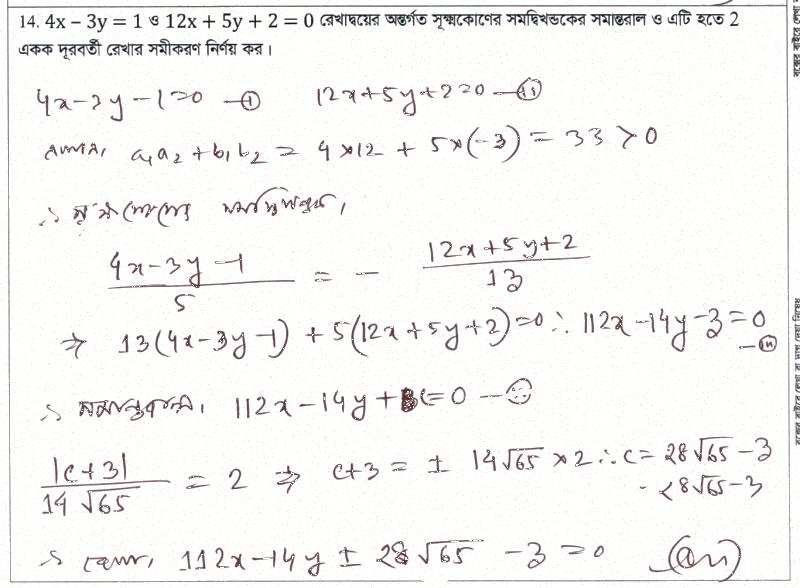 14. 4x − 3y = 1 ও 12x + 5y + 2 = 0 রেখাদ্বয়ের অন্তর্গত সূক্ষ্মকোণের সমদ্বিখন্ডকের সমান্তরাল ও এটি হতে 2
একক দূরবর্তী রেখার সমীকরণ নির্ণয় কর।
4x − 3y − 1 = 0 — (i) 12x + 5y + 2 = 0 — (ii)
a₁a₂ + b₁b₂ = 4 × 12 + 5 × (−3) = 33 > 0
∴ সূক্ষ্মকোণের
(4x − 3y − 1)/5 = − (12x + 5y + 2)/13
⇒ 13(4x − 3y − 1) + 5(12x + 5y + 2) = 0 ∴ 112x − 14y − 3 = 0 — (iii)
∴ 112x − 14y + c = 0 —
|c + 3|/(14√65) = 2 ⇒ c + 3 = ± 14√65 × 2 ∴ c = 28√65 − 3
− 28√65 − 3
∴ 112x − 14y ± 28√65 − 3 = 0 (Ans)